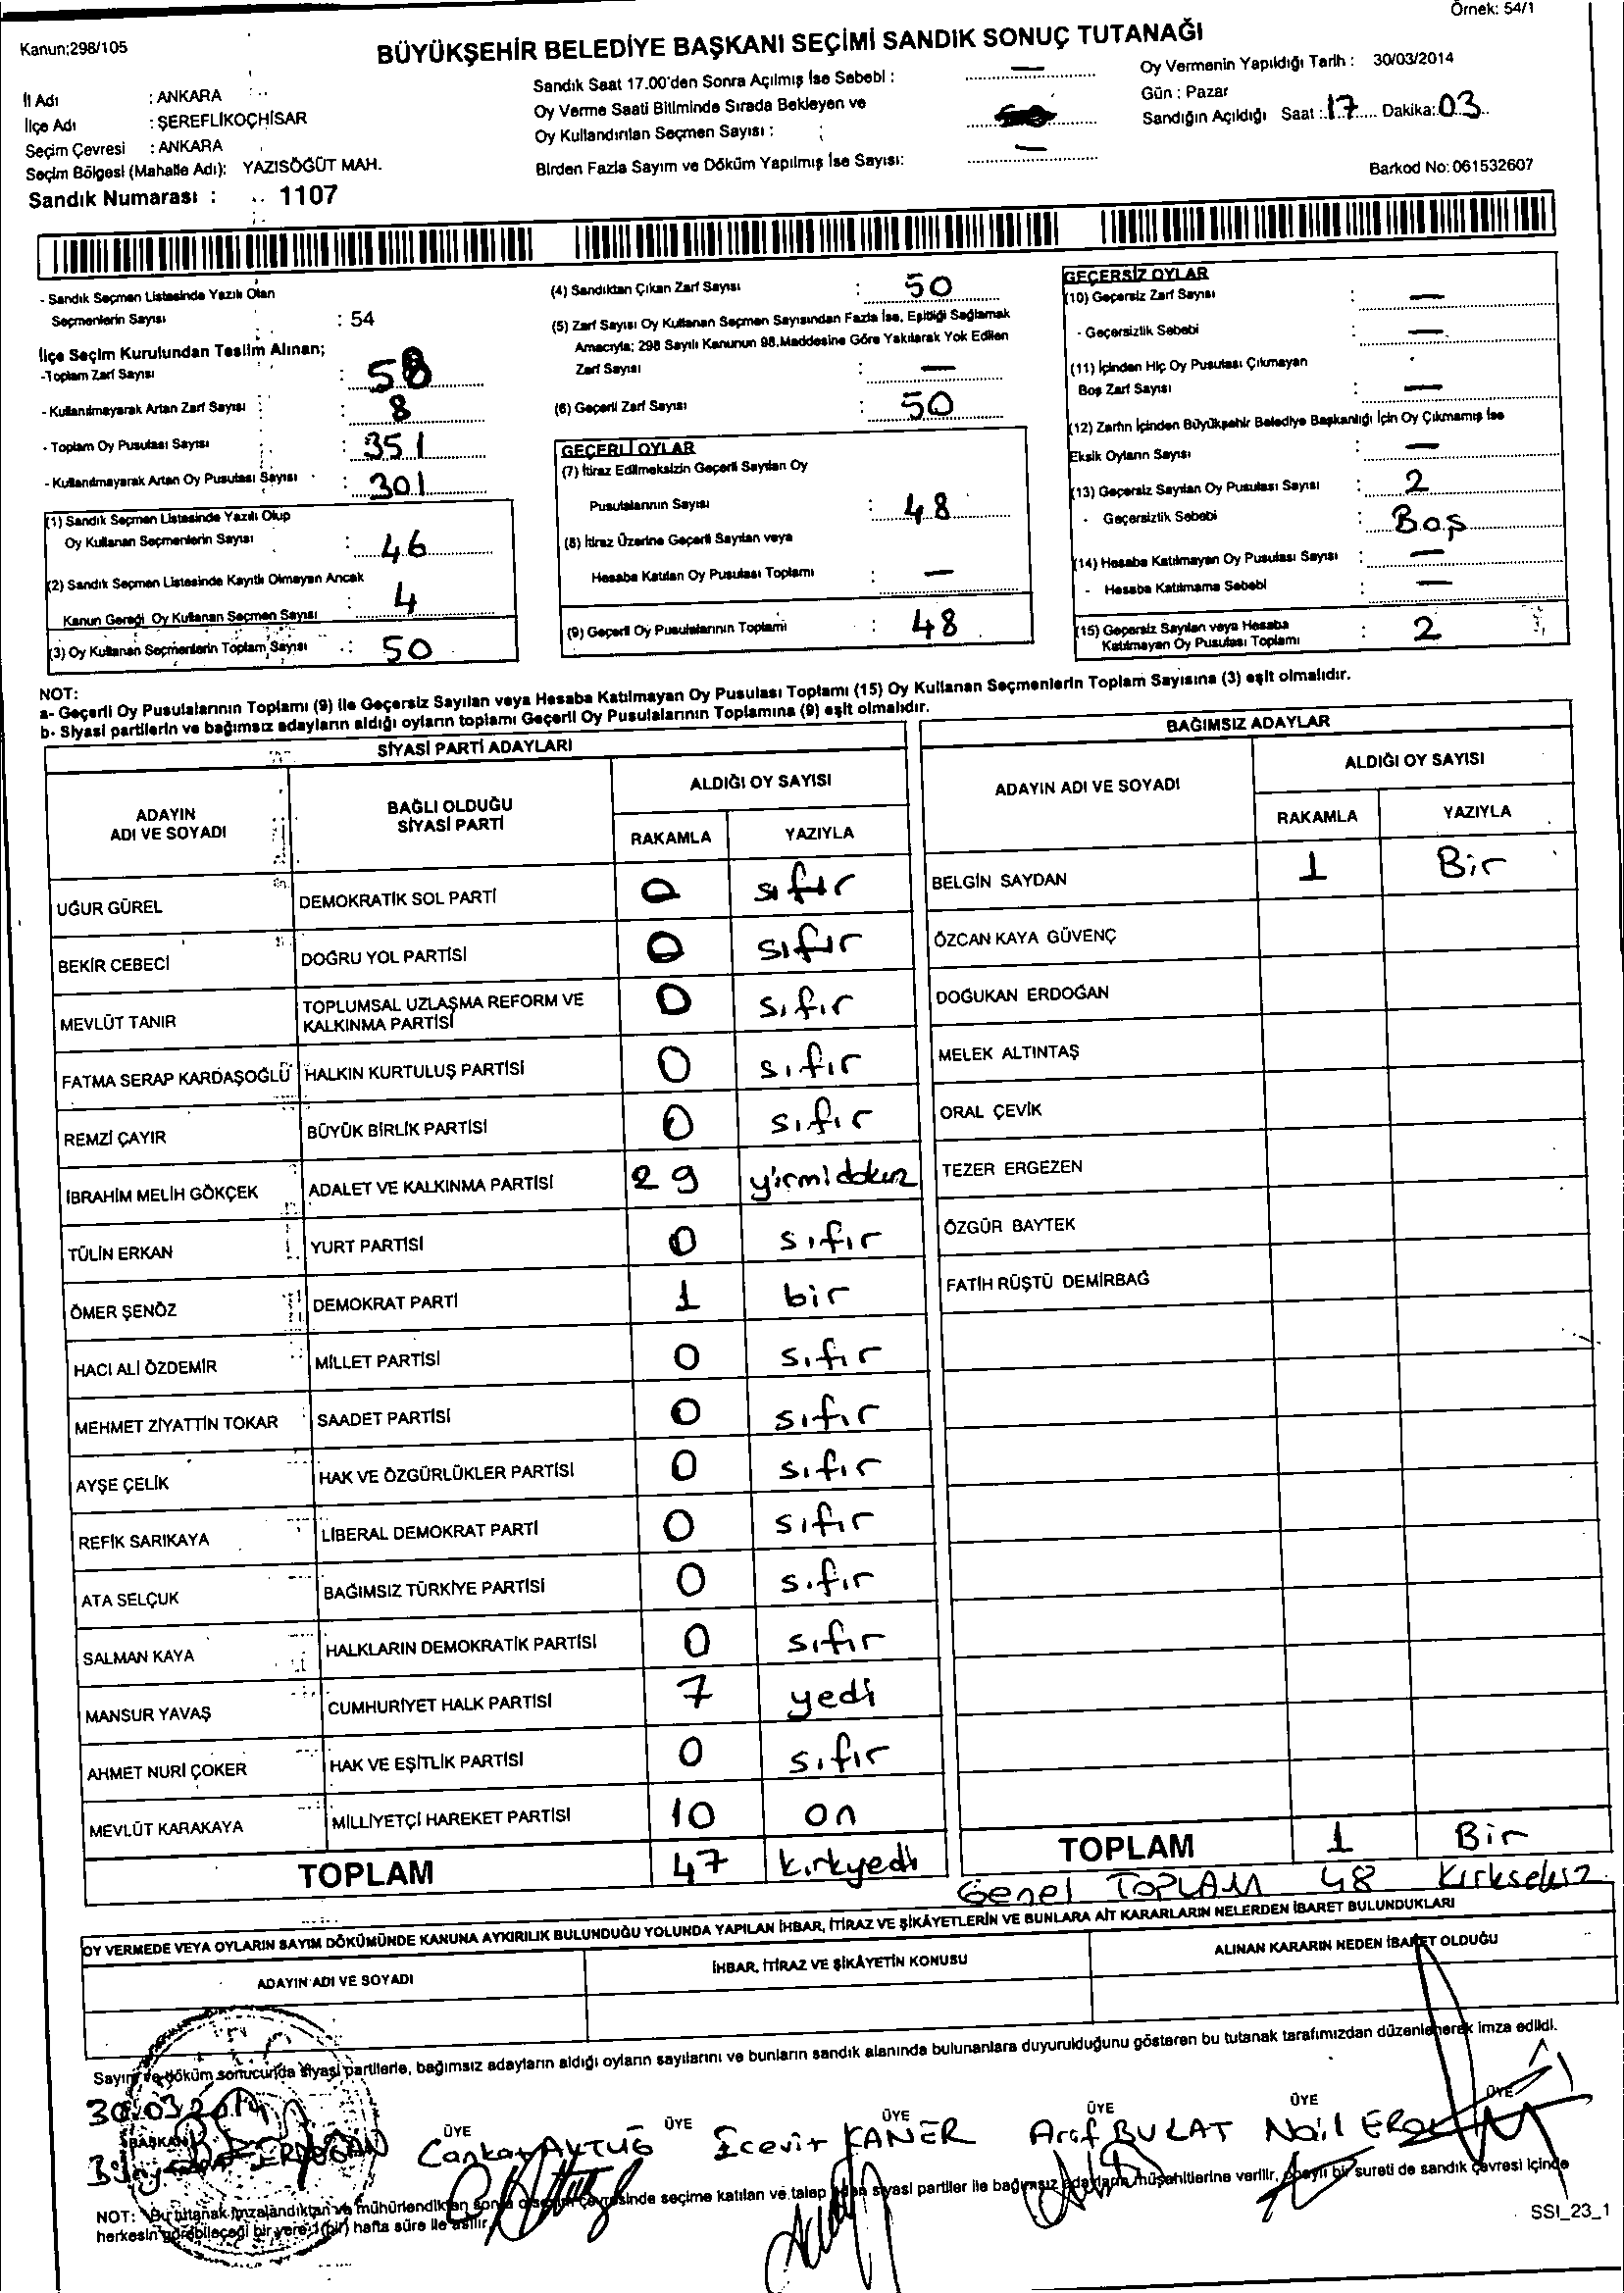 Örnek: 54/1
Kanun;298/105
BÜYÜKŞEHİR BELEDİYE BAŞKANI SEÇİMİ SANDIK SONUÇ TUTANAĞI
İl Adı : ANKARA
İlçe Adı : ŞEREFLİKOÇHİSAR
Seçim Çevresi : ANKARA
Seçim Bölgesi (Mahalle Adı): YAZISÖĞÜT MAH.
Sandık Numarası : 1107
Sandık Saat 17.00'den Sonra Açılmış İse Sebebi : —
Oy Verme Saati Bitiminde Sırada Bekleyen ve
Oy Kullandırılan Seçmen Sayısı :
Birden Fazla Sayım ve Döküm Yapılmış İse Sayısı: —
Oy Vermenin Yapıldığı Tarih : 30/03/2014
Gün : Pazar
Sandığın Açıldığı Saat : 17 Dakika: 03
Barkod No: 061532607
- Sandık Seçmen Listesinde Yazılı Olan
Seçmenlerin Sayısı : 54
İlçe Seçim Kurulundan Teslim Alınan;
-Toplam Zarf Sayısı : 58
- Kullanılmayarak Artan Zarf Sayısı : 8
- Toplam Oy Pusulası Sayısı : 351
- Kullanılmayarak Artan Oy Pusulası Sayısı : 301
(1) Sandık Seçmen Listesinde Yazılı Olup
Oy Kullanan Seçmenlerin Sayısı : 46
(2) Sandık Seçmen Listesinde Kayıtlı Olmayan Ancak
Kanun Gereği Oy Kullanan Seçmen Sayısı : 4
(3) Oy Kullanan Seçmenlerin Toplam Sayısı : 50
(4) Sandıktan Çıkan Zarf Sayısı : 50
(5) Zarf Sayısı Oy Kullanan Seçmen Sayısından Fazla İse, Eşitliği Sağlamak
Amacıyla; 298 Sayılı Kanunun 98.Maddesine Göre Yakılarak Yok Edilen
Zarf Sayısı : —
(6) Geçerli Zarf Sayısı : 50
GEÇERLİ OYLAR
(7) İtiraz Edilmeksizin Geçerli Sayılan Oy
Pusulalarının Sayısı : 48
(8) İtiraz Üzerine Geçerli Sayılan veya
Hesaba Katılan Oy Pusulası Toplamı : —
(9) Geçerli Oy Pusulalarının Toplamı : 48
GEÇERSİZ OYLAR
(10) Geçersiz Zarf Sayısı : —
- Geçersizlik Sebebi : —
(11) İçinden Hiç Oy Pusulası Çıkmayan
Boş Zarf Sayısı : —
(12) Zarfın İçinden Büyükşehir Belediye Başkanlığı İçin Oy Çıkmamış İse
Eksik Oyların Sayısı : —
(13) Geçersiz Sayılan Oy Pusulası Sayısı : 2
- Geçersizlik Sebebi : Boş
(14) Hesaba Katılmayan Oy Pusulası Sayısı : —
- Hesaba Katılmama Sebebi : —
(15) Geçersiz Sayılan veya Hesaba
Katılmayan Oy Pusulası Toplamı : 2
NOT:
a- Geçerli Oy Pusulalarının Toplamı (9) ile Geçersiz Sayılan veya Hesaba Katılmayan Oy Pusulası Toplamı (15) Oy Kullanan Seçmenlerin Toplam Sayısına (3) eşit olmalıdır.
b- Siyasi partilerin ve bağımsız adayların aldığı oyların toplamı Geçerli Oy Pusulalarının Toplamına (9) eşit olmalıdır.
SİYASİ PARTİ ADAYLARI
ADAYIN ADI VE SOYADI BAĞLI OLDUĞU SİYASİ PARTİ ALDIĞI OY SAYISI
RAKAMLA YAZIYLA
UĞUR GÜREL DEMOKRATİK SOL PARTİ 0 sıfır
BEKİR CEBECİ DOĞRU YOL PARTİSİ 0 sıfır
MEVLÜT TANIR TOPLUMSAL UZLAŞMA REFORM VE KALKINMA PARTİSİ 0 sıfır
FATMA SERAP KARDAŞOĞLU HALKIN KURTULUŞ PARTİSİ 0 sıfır
REMZİ ÇAYIR BÜYÜK BİRLİK PARTİSİ 0 sıfır
İBRAHİM MELİH GÖKÇEK ADALET VE KALKINMA PARTİSİ 29 yirmidokuz
TÜLİN ERKAN YURT PARTİSİ 0 sıfır
ÖMER ŞENÖZ DEMOKRAT PARTİ 1 bir
HACI ALİ ÖZDEMİR MİLLET PARTİSİ 0 sıfır
MEHMET ZİYATTİN TOKAR SAADET PARTİSİ 0 sıfır
AYŞE ÇELİK HAK VE ÖZGÜRLÜKLER PARTİSİ 0 sıfır
REFİK SARIKAYA LİBERAL DEMOKRAT PARTİ 0 sıfır
ATA SELÇUK BAĞIMSIZ TÜRKİYE PARTİSİ 0 sıfır
SALMAN KAYA HALKLARIN DEMOKRATİK PARTİSİ 0 sıfır
MANSUR YAVAŞ CUMHURİYET HALK PARTİSİ 7 yedi
AHMET NURİ ÇOKER HAK VE EŞİTLİK PARTİSİ 0 sıfır
MEVLÜT KARAKAYA MİLLİYETÇİ HAREKET PARTİSİ 10 on
TOPLAM 47 kırkyedi
BAĞIMSIZ ADAYLAR
ADAYIN ADI VE SOYADI ALDIĞI OY SAYISI
RAKAMLA YAZIYLA
BELGİN SAYDAN 1 Bir
ÖZCAN KAYA GÜVENÇ
DOĞUKAN ERDOĞAN
MELEK ALTINTAŞ
ORAL ÇEVİK
TEZER ERGEZEN
ÖZGÜR BAYTEK
FATİH RÜŞTÜ DEMİRBAĞ
TOPLAM 1 Bir
Genel TOPLAM 48 Kırksekiz
OY VERMEDE VEYA OYLARIN SAYIM DÖKÜMÜNDE KANUNA AYKIRILIK BULUNDUĞU YOLUNDA YAPILAN İHBAR, İTİRAZ VE ŞİKÂYETLERİN VE BUNLARA AİT KARARLARIN NELERDEN İBARET BULUNDUKLARI
ADAYIN ADI VE SOYADI İHBAR, İTİRAZ VE ŞİKÂYETİN KONUSU ALINAN KARARIN NEDEN İBARET OLDUĞU
Sayım ve döküm sonucunda siyasi partilerle, bağımsız adayların aldığı oyların sayılarını ve bunların sandık alanında bulunanlara duyurulduğunu gösteren bu tutanak tarafımızdan düzenlenerek imza edildi.
30.03.2014
BAŞKAN ÜYE ÜYE ÜYE ÜYE ÜYE ÜYE
ERDOĞAN AKTUĞ Ecevit KANER Arif BULAT Nail
NOT: Bu tutanak imzalandıktan ve mühürlendikten sonra seçim çevresinde seçime katılan ve talep eden siyasi partiler ile bağımsız adayların müşahitlerine verilir, onaylı bir sureti de sandık çevresi içinde
herkesin görebileceği bir yere 1 (bir) hafta süre ile asılır.
SSI_23_1